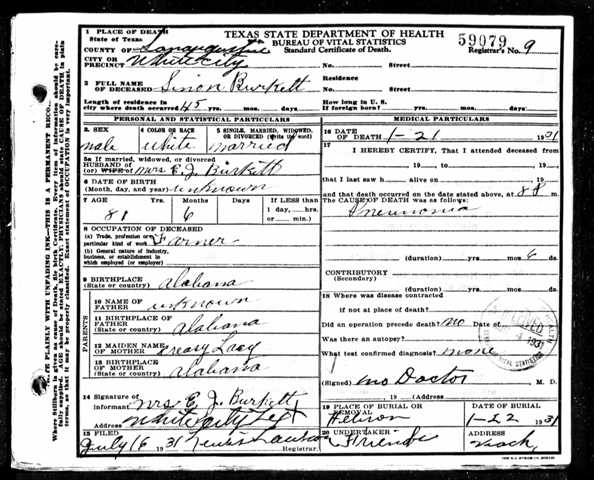 TEXAS STATE DEPARTMENT OF HEALTH
BUREAU OF VITAL STATISTICS
Standard Certificate of Death.
59079
Registrar's No. 9
1 PLACE OF DEATH
State of Texas
COUNTY OF San Augustine
CITY OR PRECINCT White City No. Street
2 FULL NAME OF DECEASED Simon Burkett
Residence No. Street
Length of residence in city where death occurred 45 yrs. mos. days. How long in U. S. if of foreign birth? years months days
PERSONAL AND STATISTICAL PARTICULARS
3. SEX male
4 COLOR OR RACE white
5 SINGLE, MARRIED, WIDOWED, OR DIVORCED (Write the word) married
5a If married, widowed, or divorced
HUSBAND OF (or) WIFE OF Mrs E. J. Burkett
6 DATE OF BIRTH (Month, day, and year) unknown
7 AGE 81 Yrs. 6 Months Days If LESS than 1 day, hrs. or min.
8 OCCUPATION OF DECEASED
(a) Trade, profession or particular kind of work Farmer
(b) General nature of Industry, business, or establishment in which employed (or employer)
9 BIRTHPLACE (State or country) Alabama
PARENTS
10 NAME OF FATHER unknown
11 BIRTHPLACE OF FATHER (State or country) Alabama
12 MAIDEN NAME OF MOTHER Lacy
13 BIRTHPLACE OF MOTHER (State or country) Alabama
14 Signature of informant Mrs E J Burkett
Address White City Tex
15 FILED July 16 1931 Registrar.
MEDICAL PARTICULARS
16 DATE OF DEATH 1-21 1931
17 I HEREBY CERTIFY, That I attended deceased from
19 to 19
that I last saw h alive on 19
and that death occurred on the date stated above, at 8 m.
The CAUSE OF DEATH was as follows:
Pneumonia
(duration) yrs. mos. 6 ds.
CONTRIBUTORY (Secondary)
(duration) yrs. mos. ds.
18 Where was disease contracted
if not at place of death?
Did an operation precede death? no Date of
Was there an autopsy?
What test confirmed diagnosis? none
(Signed) no Doctor M. D.
, 19 (Address)
19 PLACE OF BURIAL OR REMOVAL
DATE OF BURIAL 1-22 1931
20 UNDERTAKER Friends
ADDRESS
1931